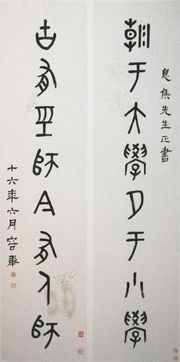 息侯先生正書
朝于大學夕于小學
古有巠師今有人師
十六年六月容庚